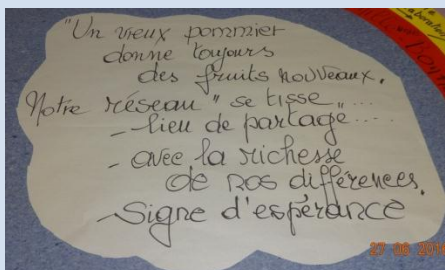 "Un vieux pommier
donne toujours
des fruits nouveaux.
Notre réseau "se tisse"....
- lieu de partage....
- avec la richesse
de nos différences.
- Signe d'espérance